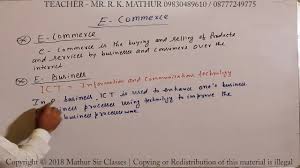 TEACHER - MR. R. K. MATHUR 09830489610 / 08777249775
E-Commerce
E-Commerce
E-Commerce is the buying and selling of Products
and services by businesses and consumers over the
internet
E-Business
ICT - Information and Communication technology
In e business, ICT is used to enhance one's business
business processes using technology to improve the
business processes
Copyright © 2018 Mathur Sir Classes | Copying or Redistribution of this material is illegal